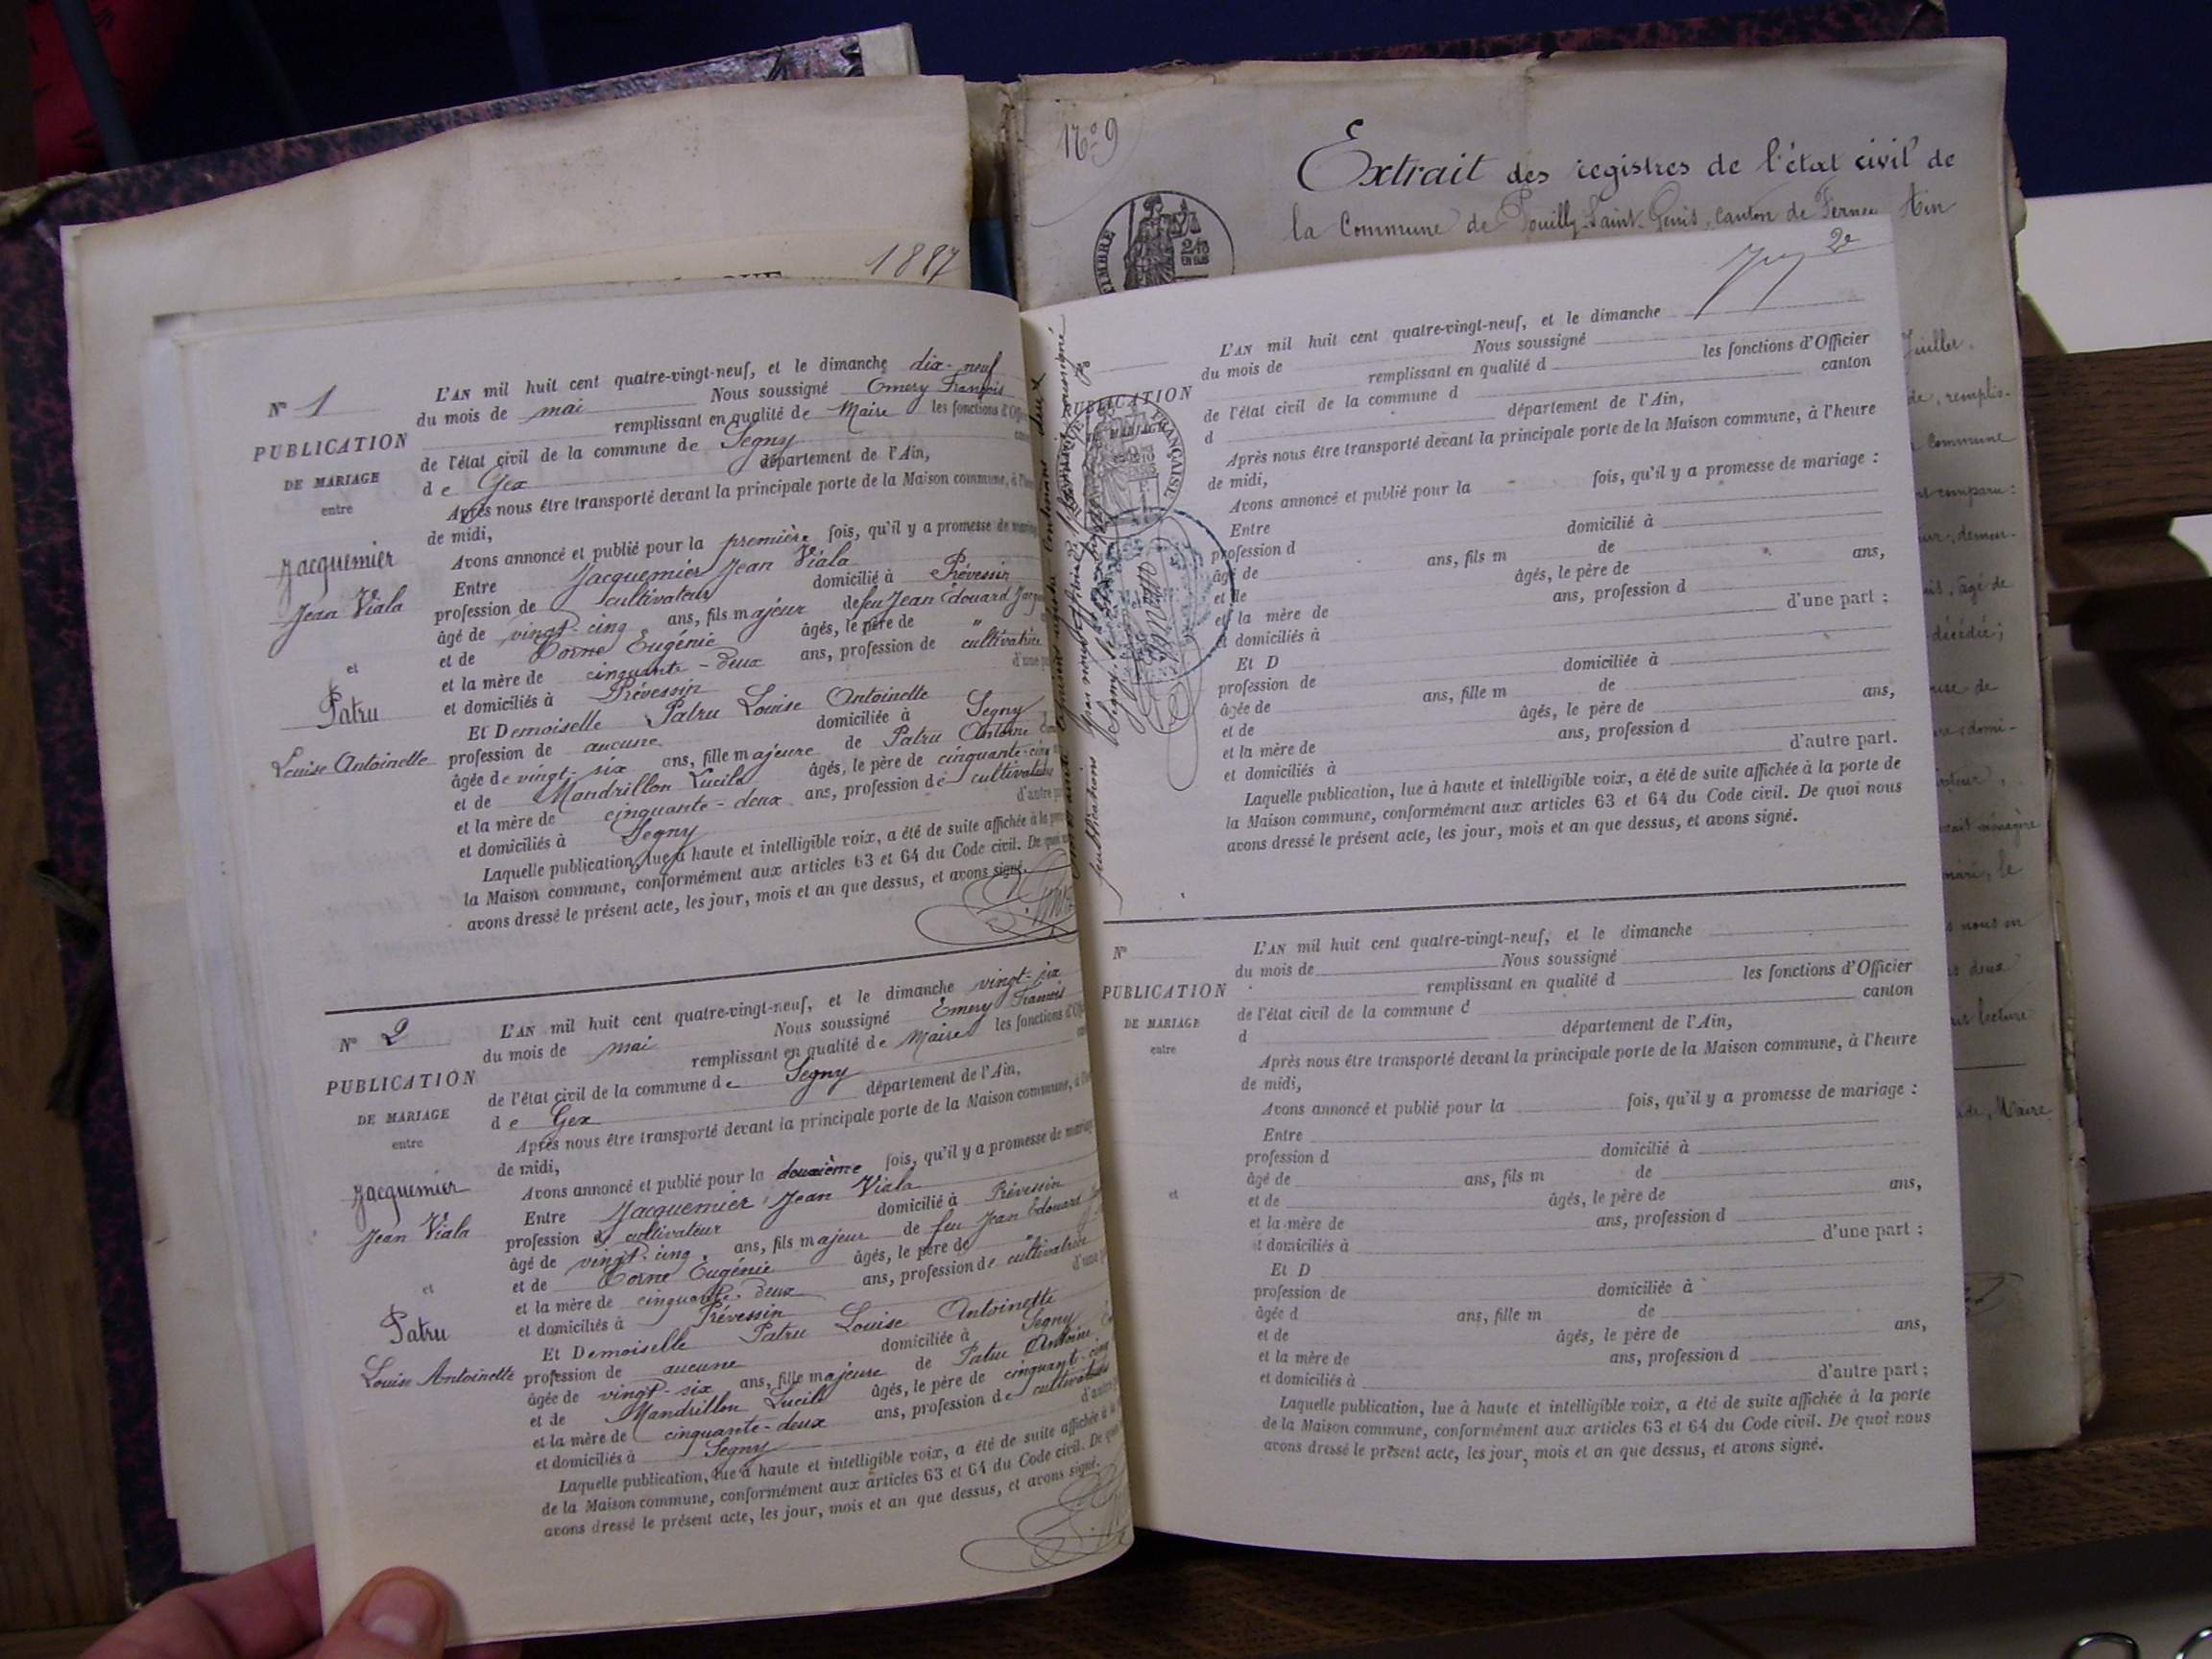 1887
N° 1
PUBLICATION
DE MARIAGE
entre
Jacquemier
Jean Viala
et
Patru
Louise Antoinette
L'AN mil huit cent quatre-vingt-neuf, et le dimanche dix-neuf
du mois de mai Nous soussigné Emery François
remplissant en qualité de Maire les fonctions d'Off
de l'état civil de la commune de Segny
de Gex département de l'Ain,
Après nous être transporté devant la principale porte de la Maison commune, à l'h
de midi,
Avons annoncé et publié pour la première fois, qu'il y a promesse de maria
Entre Jacquemier Jean Viala
profession de cultivateur domicilié à Prévessin
âgé de vingt-cinq ans, fils majeur de feu Jean Edouard Jacq
et de Corne Eugénie âgés, le père de "
et la mère de cinquante-deux ans, profession de cultivatrice
et domiciliés à Prévessin d'une p
Et Demoiselle Patru Louise Antoinette
profession de aucune domiciliée à Segny
âgée de vingt-six ans, fille majeure de Patru Antoine
et de Mandrillon Lucile âgés, le père de cinquante-cinq
et la mère de cinquante-deux ans, profession de cultivateurs
et domiciliés à Segny d'autre p
Laquelle publication, lue à haute et intelligible voix, a été de suite affichée à la p
la Maison commune, conformément aux articles 63 et 64 du Code civil. De quoi n
avons dressé le présent acte, les jour, mois et an que dessus, et avons signé.
N° 2
PUBLICATION
DE MARIAGE
entre
Jacquemier
Jean Viala
et
Patru
Louise Antoinette
L'AN mil huit cent quatre-vingt-neuf, et le dimanche vingt-six
du mois de mai Nous soussigné Emery François
remplissant en qualité de Maire les fonctions d'Off
de l'état civil de la commune de Segny
de Gex département de l'Ain,
Après nous être transporté devant la principale porte de la Maison commune, à l'h
de midi,
Avons annoncé et publié pour la deuxième fois, qu'il y a promesse de mariage
Entre Jacquemier Jean Viala
profession d cultivateur domicilié à Prévessin
âgé de vingt-cinq ans, fils majeur de feu Jean Edouard
et de Corne Eugénie âgés, le père de "
et la mère de cinquante-deux ans, profession de cultivatrice
et domiciliés à Prévessin d'une p
Et Demoiselle Patru Louise Antoinette
profession de aucune domiciliée à Segny
âgée de vingt-six ans, fille majeure de Patru Antoine
et de Mandrillon Lucile âgés, le père de cinquante-cinq
et la mère de cinquante-deux ans, profession de cultivateurs
et domiciliés à Segny d'autre
Laquelle publication, lue à haute et intelligible voix, a été de suite affichée à la
de la Maison commune, conformément aux articles 63 et 64 du Code civil. De quo
avons dressé le présent acte, les jour, mois et an que dessus, et avons signé.
N° 9
Extrait des registres de l'état civil de
la Commune de Pouilly-Saint-Genis, canton de Ferney Ain
TIMBRE
2e
PUBLICATION
DE MARIAGE
FRANÇAISE
publications
L'AN mil huit cent quatre-vingt-neuf, et le dimanche
du mois de Nous soussigné
remplissant en qualité d les fonctions d'Officier
de l'état civil de la commune d canton
d département de l'Ain,
Après nous être transporté devant la principale porte de la Maison commune, à l'heure
de midi,
Avons annoncé et publié pour la fois, qu'il y a promesse de mariage :
Entre
profession d domicilié à
âgé de ans, fils m de
et de âgés, le père de ans,
et la mère de ans, profession d
et domiciliés à d'une part ;
Et D
profession de domiciliée à
âgée de ans, fille m de
et de âgés, le père de ans,
et la mère de ans, profession d
et domiciliés à d'autre part.
Laquelle publication, lue à haute et intelligible voix, a été de suite affichée à la porte de
la Maison commune, conformément aux articles 63 et 64 du Code civil. De quoi nous
avons dressé le présent acte, les jour, mois et an que dessus, et avons signé.
N°
PUBLICATION
DE MARIAGE
entre
et
L'AN mil huit cent quatre-vingt-neuf, et le dimanche
du mois de Nous soussigné
remplissant en qualité d les fonctions d'Officier
de l'état civil de la commune d canton
d département de l'Ain,
Après nous être transporté devant la principale porte de la Maison commune, à l'heure
de midi,
Avons annoncé et publié pour la fois, qu'il y a promesse de mariage :
Entre
profession d domicilié à
âgé de ans, fils m de
et de âgés, le père de ans,
et la mère de ans, profession d
et domiciliés à d'une part ;
Et D
profession de domiciliée à
âgée d ans, fille m de
et de âgés, le père de ans,
et la mère de ans, profession d
et domiciliés à d'autre part ;
Laquelle publication, lue à haute et intelligible voix, a été de suite affichée à la porte
de la Maison commune, conformément aux articles 63 et 64 du Code civil. De quoi nous
avons dressé le présent acte, les jour, mois et an que dessus, et avons signé.
Juillet,
de, remplis-
commune
comparu:
, demeu-
, âgé de
décédé;
domi-
ménagère
, le
nous en
deux
lecture
, Maire